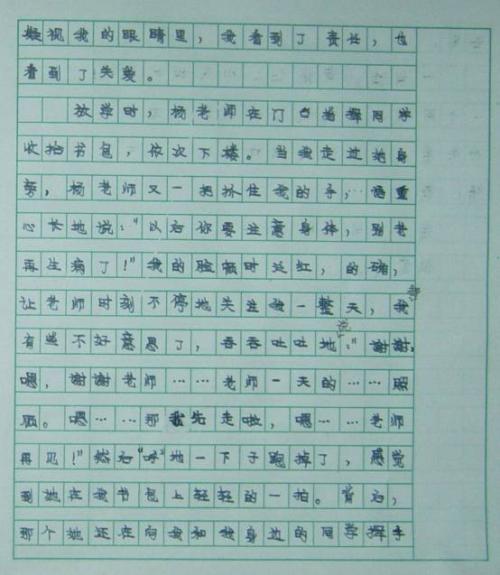 凝视我的眼睛里，我看到了责任，也
看到了关爱。
放学时，杨老师在门口指挥同学
收拾书包，依次下楼。当我走过她身
旁，杨老师又一把抓住我的手，语重
心长地说：“以后你要注意身体，别老
再生病了！”我的脸顿时发红，的确，
让老师时刻不停地关注我一整天，我
有些不好意思了，吞吞吐吐地说：“谢谢，
嗯，謝謝老师……老师一天的……照
顾。嗯……那我先走啦，嗯……老师
再见！”然后“呼”地一下子跑掉了，感觉
到她在我书包上轻轻的一拍。背后，
那个她还在向我和我身边的同学挥手